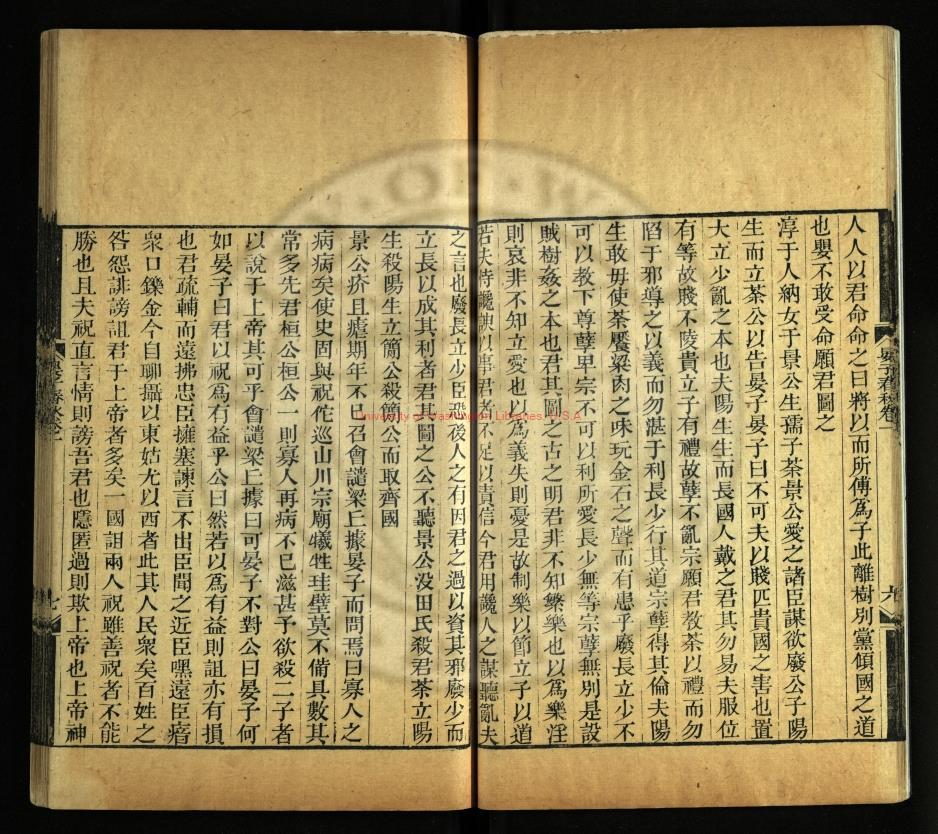 人人以君命命之曰將以而所傅爲子此離樹別黨傾國之道
也嬰不敢受命願君圖之
淳于人納女于景公生孺子荼景公愛之諸臣謀欲廢公子陽
生而立荼公以告晏子晏子曰不可夫以賤匹貴國之害也置
大立少亂之本也夫陽生生而長國人戴之君其勿易夫服位
有等故賤不陵貴立子有禮故孽不亂宗願君教荼以禮而勿
陷于邪導之以義而勿湛于利長少行其道宗孽得其倫夫陽
生敢毋使荼饜粱肉之味玩金石之聲而有患乎廢長立少不
可以教下尊孽卑宗不可以利所愛長少無等宗孽無別是設
賊樹姦之本也君其圖之古之明君非不知繁樂也以爲樂淫
則哀非不知立愛也以爲義失則憂是故制樂以節立子以道
若夫恃讒諛以事君者不足以責信今君用讒人之謀聽亂夫
之言也廢長立少臣恐後人之有因君之過以資其邪廢少而
立長以成其利者君其圖之公不聽景公沒田氏殺君荼立陽
生殺陽生立簡公殺簡公而取齊國
景公疥且瘧期年不已召會譴梁丘據晏子而問焉曰寡人之
病病矣使史固與祝佗巡山川宗廟犧牲珪璧莫不備具數其
常多先君桓公桓公一則寡人再病不已滋甚予欲殺二子者
以說于上帝其可乎會譴梁丘據曰可晏子不對公曰晏子何
如晏子曰君以祝爲有益乎公曰然若以爲有益則詛亦有損
也君疏輔而遠拂忠臣擁塞諫言不出臣聞之近臣嘿遠臣瘖
衆口鑠金今自聊攝以東姑尤以西者此其人民衆矣百姓之
咎怨誹謗詛君于上帝者多矣一國詛兩人祝雖善祝者不能
勝也且夫祝直言情則謗吾君也隱匿過則欺上帝也上帝神
晏子春秋卷一
六
七
University of Washington Libraries, U.S.A